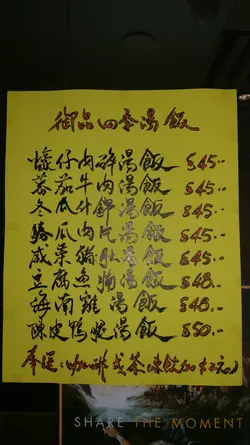 御品四季湯飯
蠔仔肉碎湯飯 $45..
蕃茄牛肉湯飯 $45..
冬瓜什錦湯飯 $45..
勝瓜肉片湯飯 $45..
咸菜豬肚湯飯 $45..
豆腐魚湯飯 $48..
海南雞湯飯 $48..
陳皮鴨腿湯飯 $50..
奉送:咖啡或茶(凍飲加$2元)
SHARE THE MOMENT